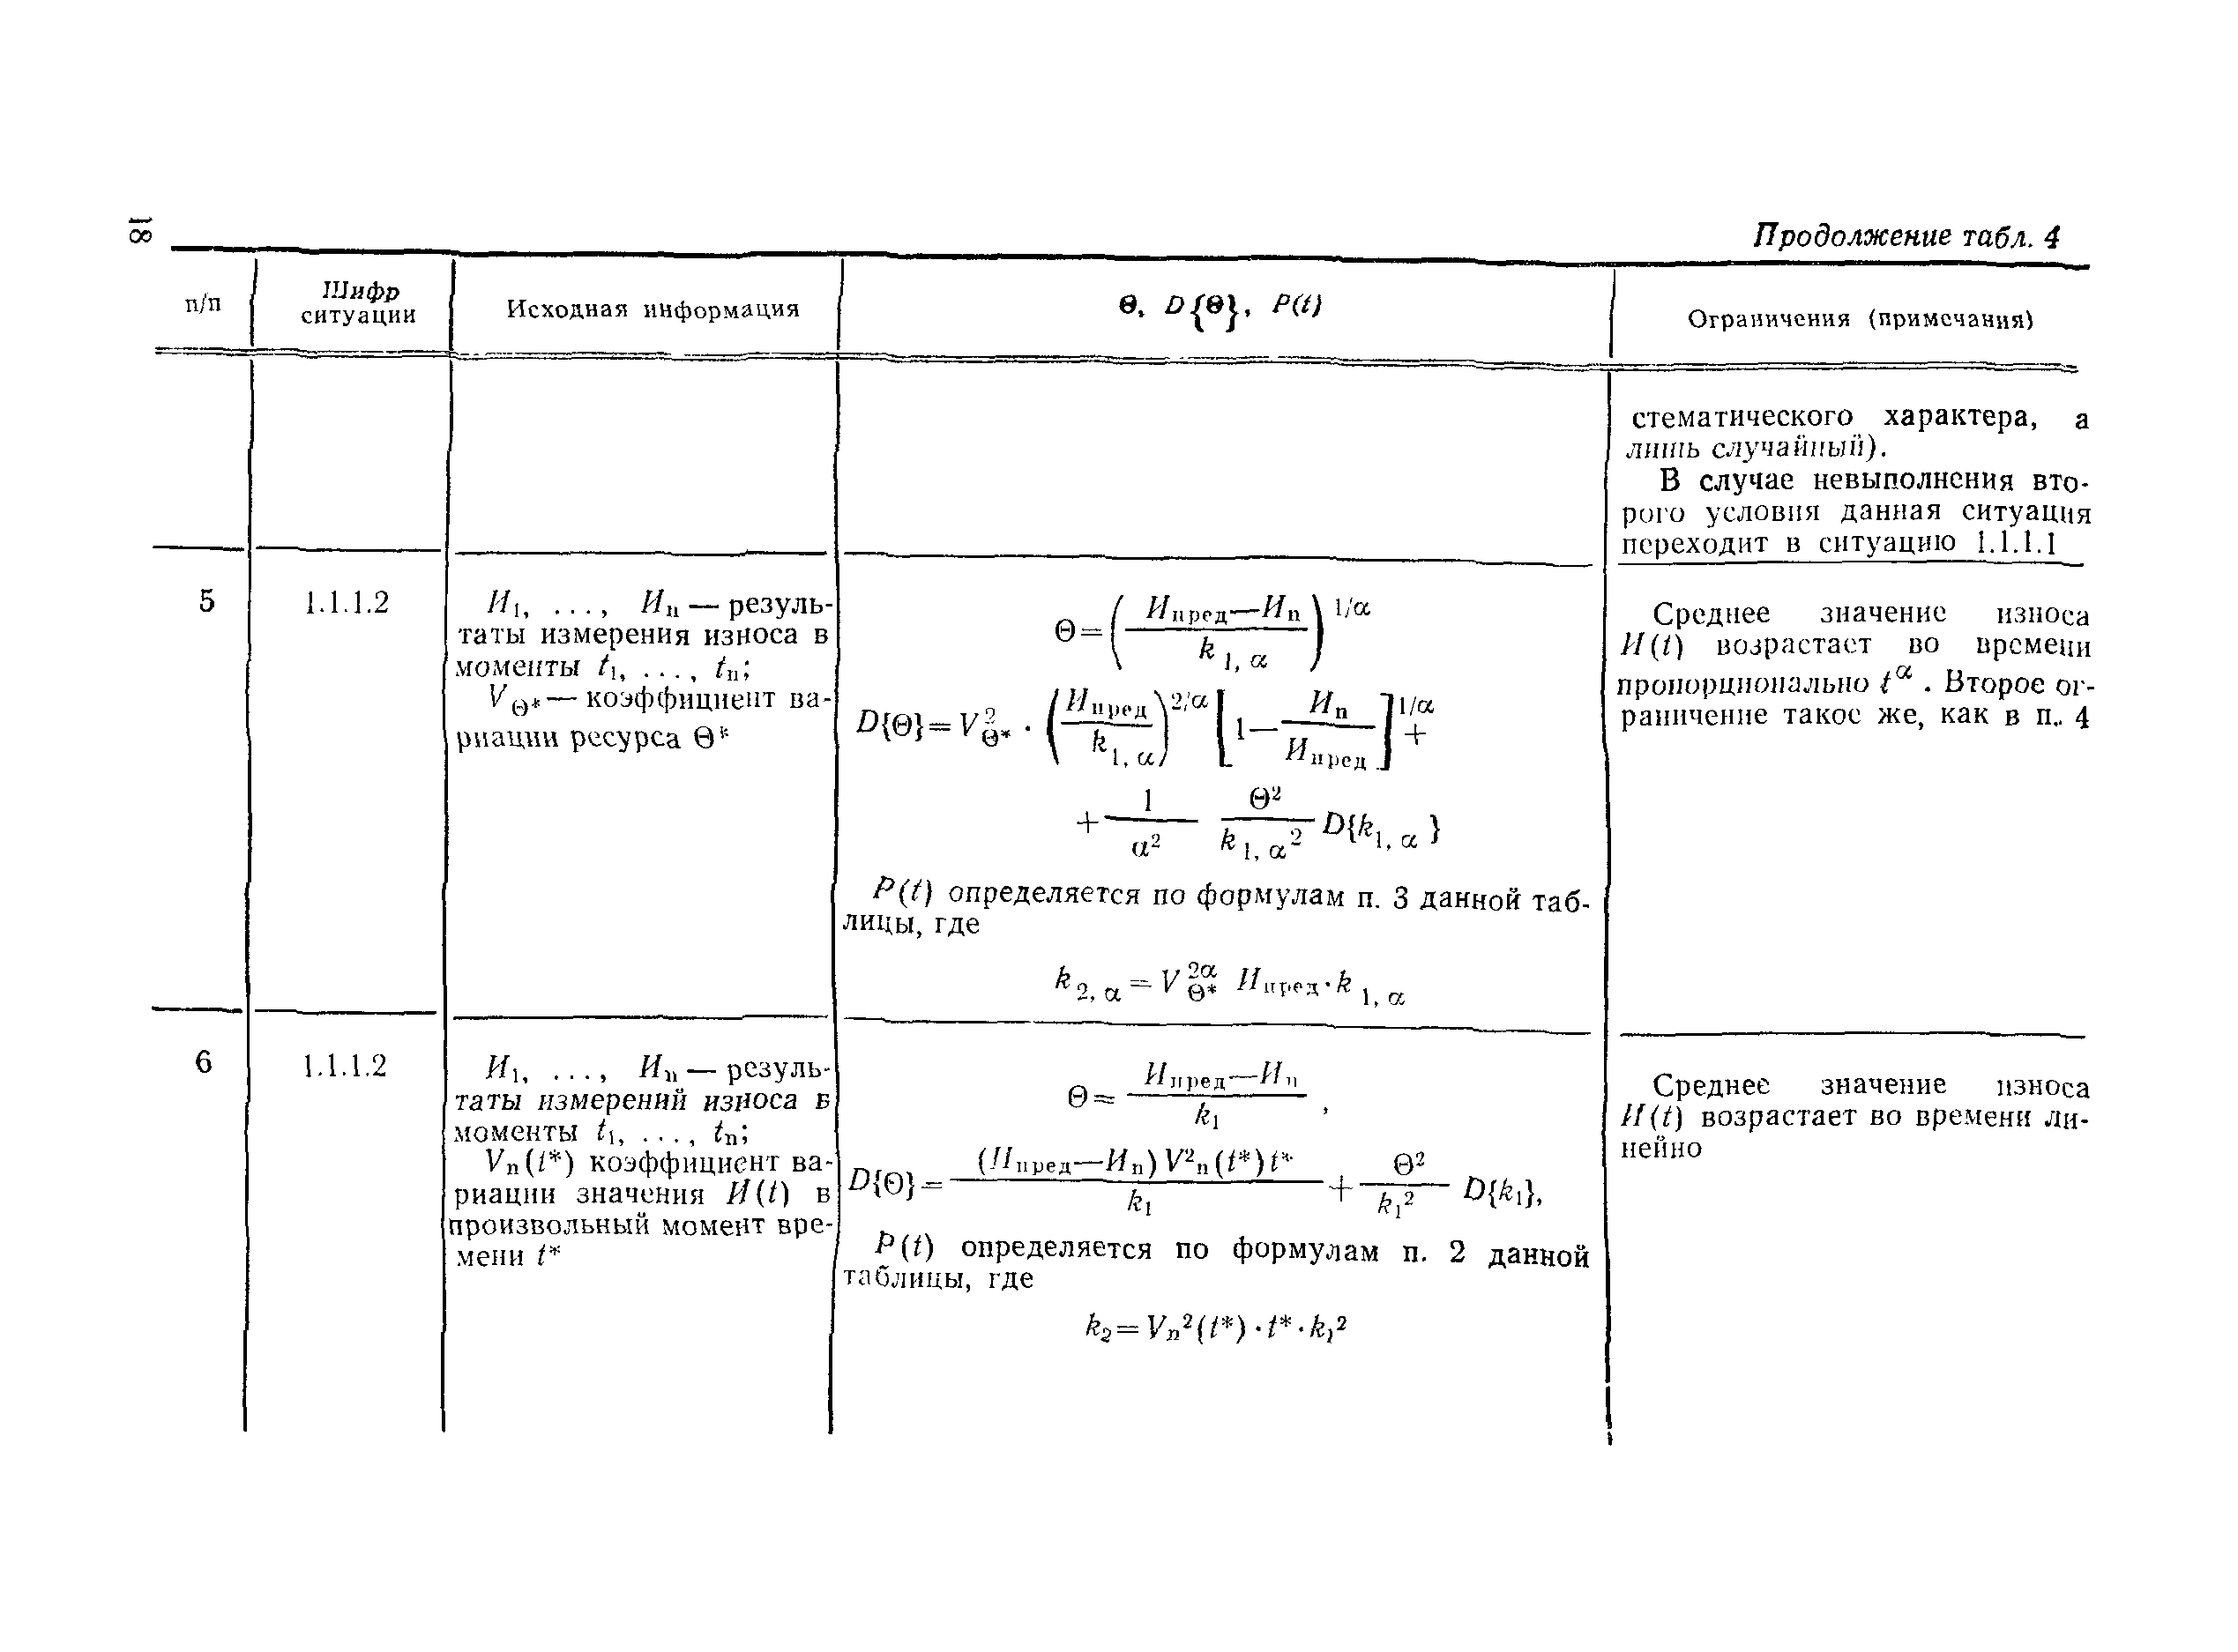 18
Продолжение табл. 4
п/п
Шифр
ситуации
Исходная информация
Θ, D{Θ}, P(t)
Ограничения (примечания)
стематического характера, а
лишь случайный).
В случае невыполнения вто-
рого условия данная ситуация
переходит в ситуацию 1.1.1.1
5
1.1.1.2
И₁, ..., Иₙ — резуль-
таты измерения износа в
моменты t₁, ..., tₙ;
V_Θ* — коэффициент ва-
риации ресурса Θ*
Θ = ((Ипред — Ип) / k₁, α)^1/α
D{Θ} = V²_Θ* · (Ипред / k₁, α)^2/α [1 — Ип / Ипред]^1/α +
+ 1/α² Θ²/k₁, α² D{k₁, α}
P(t) определяется по формулам п. 3 данной таб-
лицы, где
k₂, α = V^2α_Θ* Ипред · k₁, α
Среднее значение износа
И(t) возрастает во времени
пропорционально t^α. Второе ог-
раничение такое же, как в п. 4
6
1.1.1.2
И₁, ..., Иₙ — резуль-
таты измерений износа в
моменты t₁, ..., tₙ;
Vп(t*) коэффициент ва-
риации значения И(t) в
произвольный момент вре-
мени t*
Θ = (Ипред — Ип) / k₁,
D{Θ} = (Ипред — Ип) V²п(t*) t* / k₁ + Θ²/k₁² D{k₁},
P(t) определяется по формулам п. 2 данной
таблицы, где
k₂ = Vп²(t*) · t* · k₁²
Среднее значение износа
И(t) возрастает во времени ли-
нейно